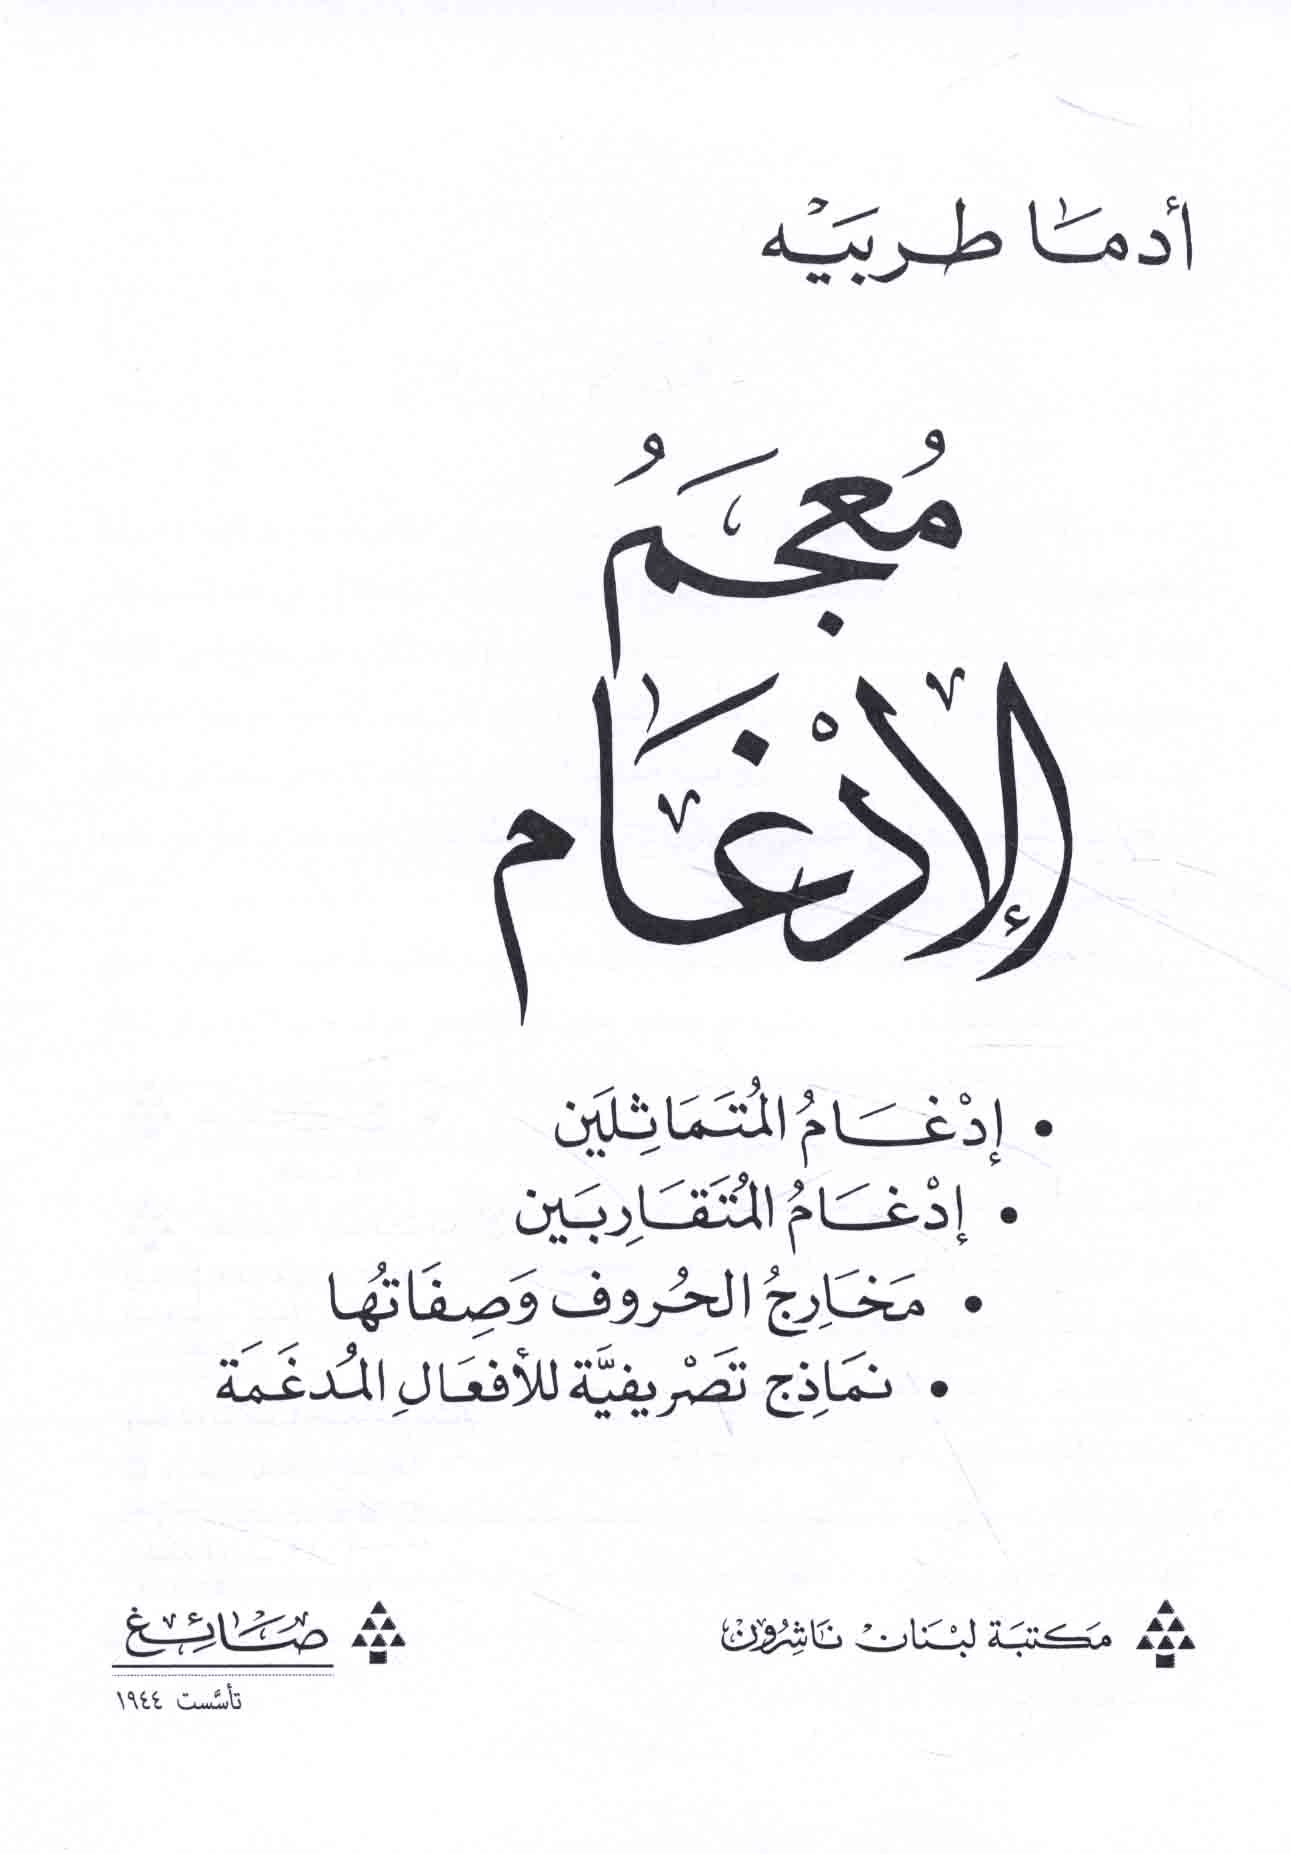 أدمَا طربَيْه
مُعجَمُ
الإدْغَام
• إدْغَامُ المُتَمَاثِلَين
• إدْغَامُ المُتَقَارِبَين
• مَخَارِجُ الحُروف وَصِفَاتُها
• نمَاذِج تَصْريفيَّة للأفعَالِ المُدغَمَة
مَكتبَة لبْنَان نَاشِرُون
صَائِغ
تأسَّست ١٩٤٤